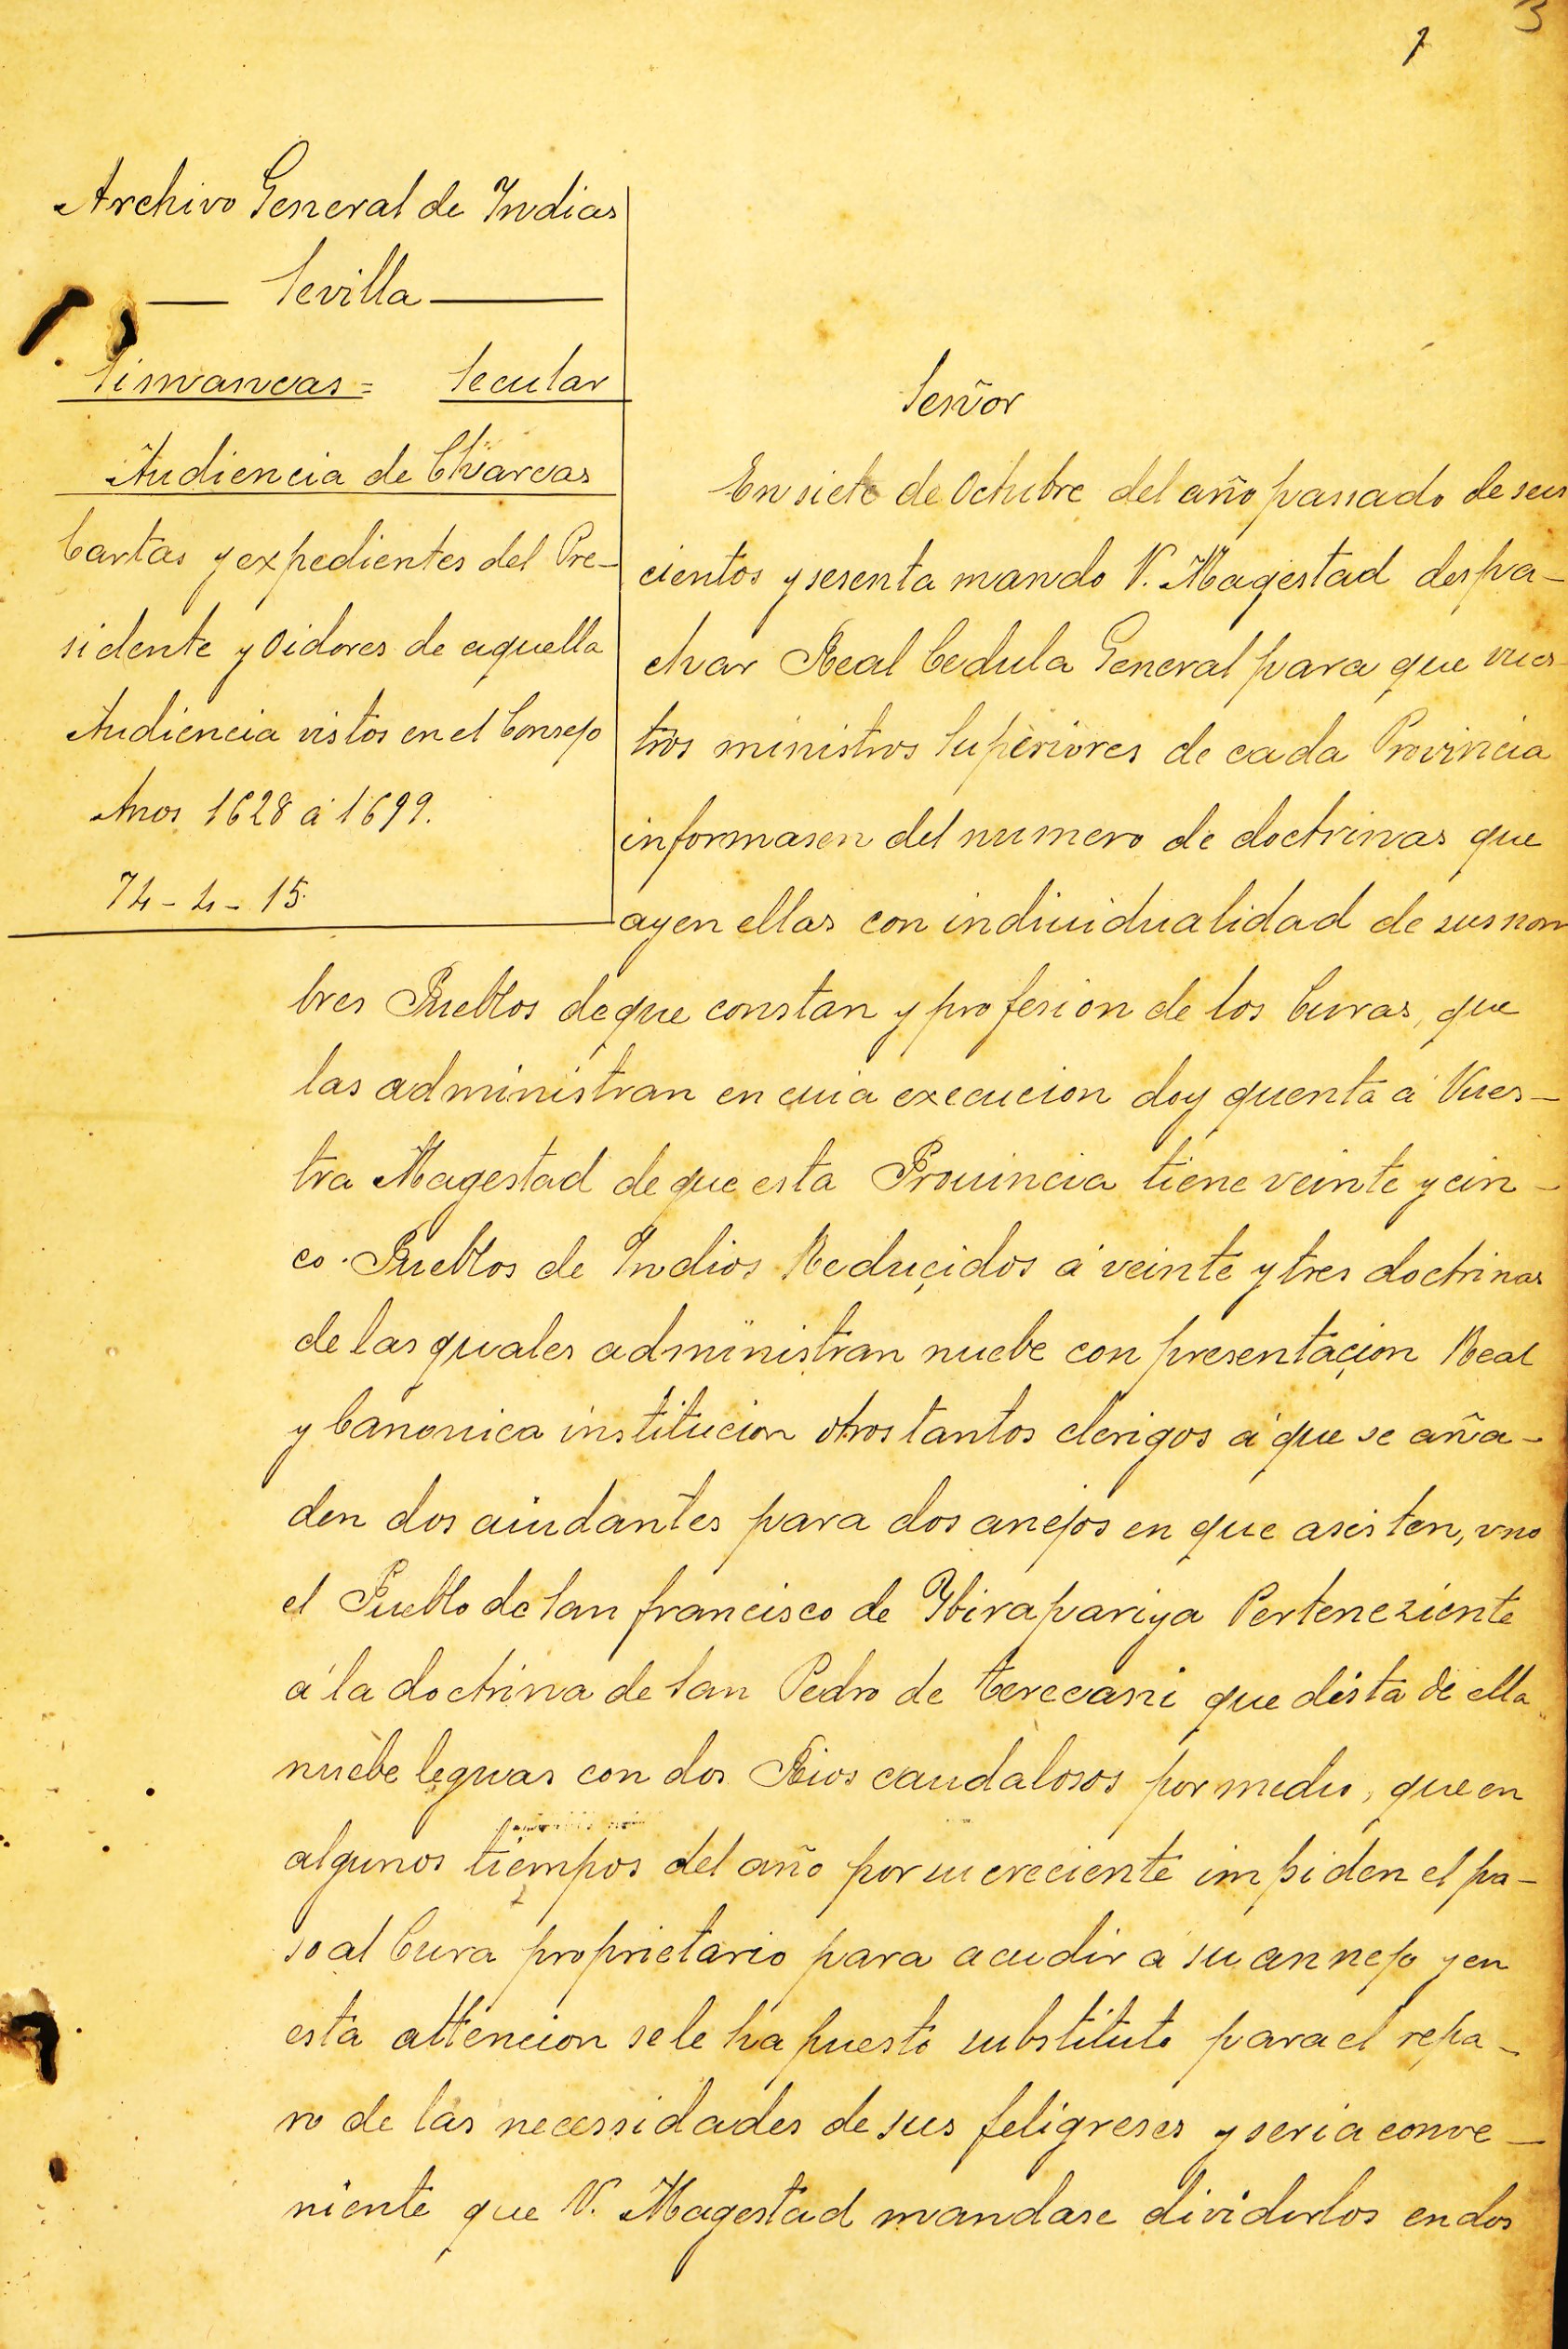 1
3
Archivo General de Indias
— Sevilla —
Simancas = Secular
Audiencia de Charcas
Cartas y expedientes del Pre-
sidente y Oidores de aquella
Audiencia vistos en el Consejo
Anos 1628 á 1699.
74 - 4 - 15.
Señor
En siete de Octubre del año passado de seis
cientos y sesenta mando V. Magestad despa-
char Real Cedula General para que vues-
tros ministros Superiores de cada Provincia
informasen del numero de doctrinas que
ay en ellas con indiuidualidad de sus nom
bres Pueblos de que constan y profesion de los Curas, que
las administran en cuia execucion doy quenta á Vues-
tra Magestad de que esta Prouincia tiene veinte y cin-
co Pueblos de Indios Reduçidos á veinte y tres doctrinas
de las quales administran nuebe con presentaçion Real
y Canonica institucion otros tantos clerigos á que se aña-
den dos aiudantes para dos anejos en que asisten, vno
el Pueblo de San francisco de Ybirapariya Perteneziente
á la doctrina de San Pedro de terecani que dista de ella
nuebe leguas con dos Rios caudalosos por medio, que en
algunos tiempos del año por su creciente impiden el pa-
so al Cura proprietario para acudir á su annejo y en
esta attencion se le ha puesto substituto para el repa-
ro de las necessidades de sus feligreses y seria conve-
niente que V. Magestad mandase dividirlos en dos